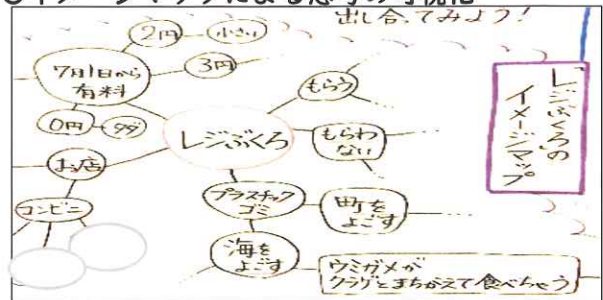 出し合ってみよう!
レジぶくろの
イメージマップ
レジぶくろ
7月1日から
有料
2円
小さい
3円
0円
タダ
もらう
もらわ
ない
お店
コンビニ
プラスチック
ゴミ
町を
よごす
海を
よごす
ウミガメが
クラゲとまちがえて食べちゃう